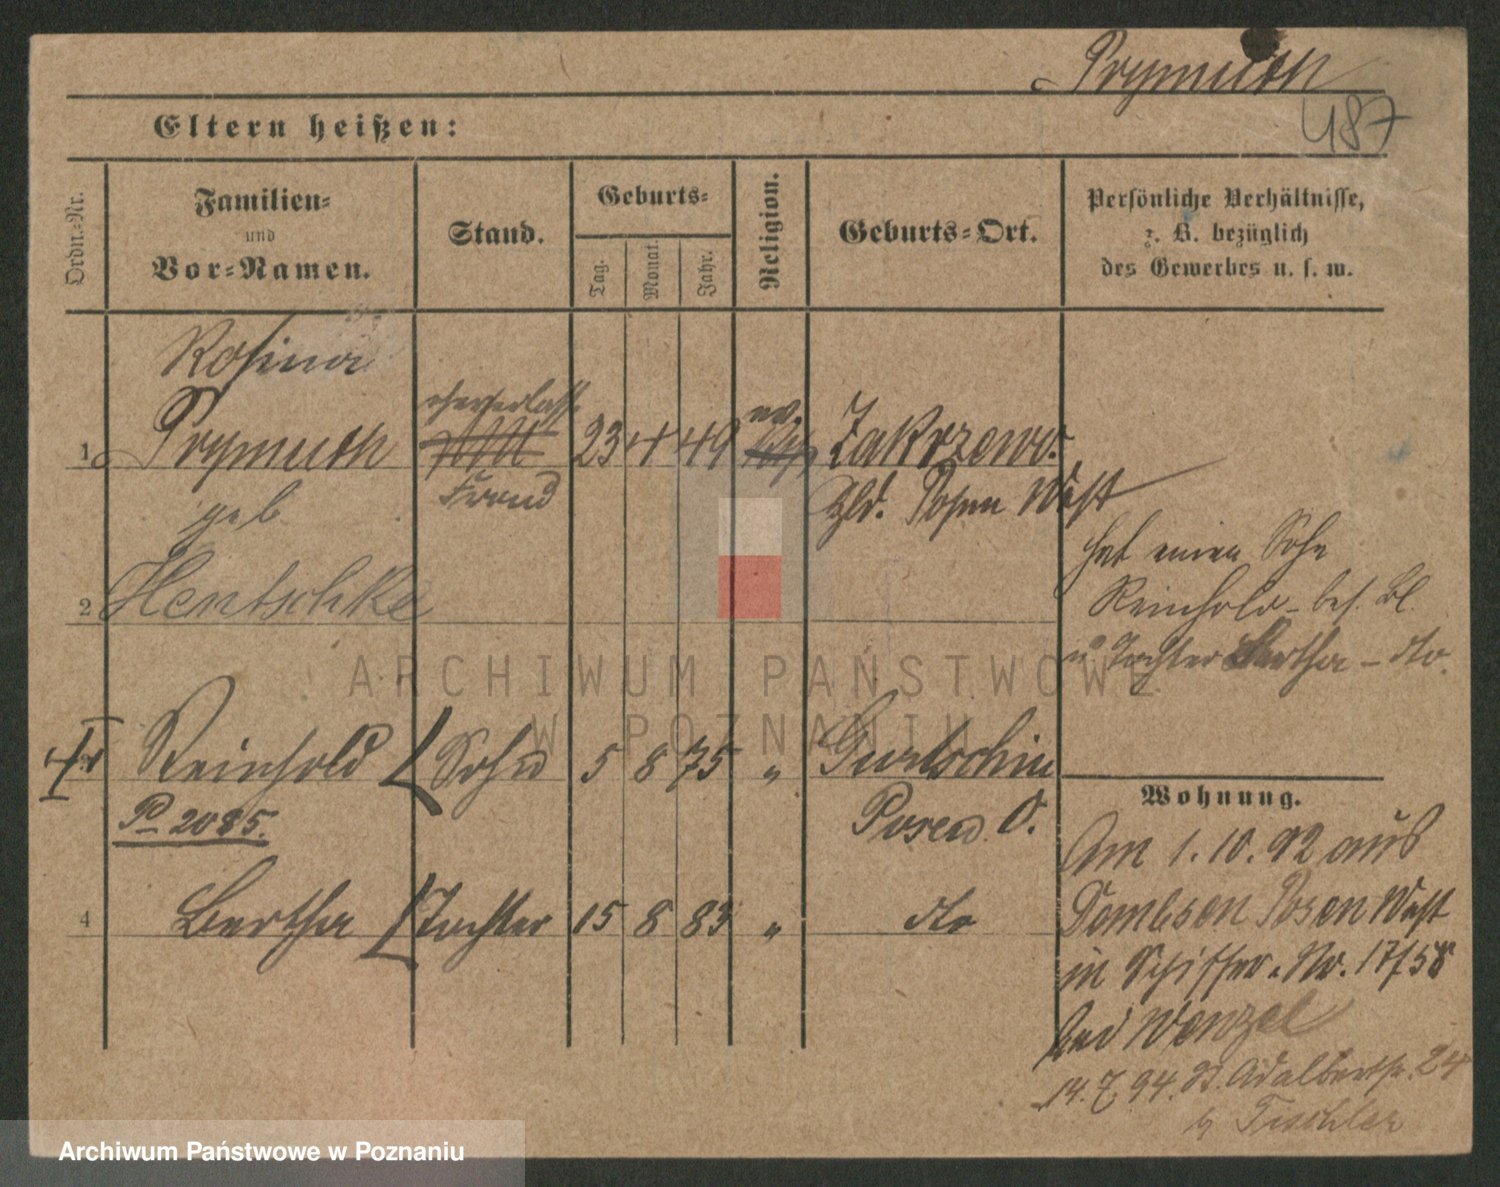 Prymuth
487
Eltern heißen:
Ordn.-Nr.
Familien-
und
Vor-Namen.
Stand.
Geburts-
Tag.
Monat.
Jahr.
Religion.
Geburts-Ort.
Persönliche Verhältnisse,
z. B. bezüglich
des Gewerbes u. s. w.
Rosina
1 Prymuth 23 4 49 ev. Zakrzewo.
geb Posen West
2 Hentschke
hat einen Sohn
Reinhold - bes. Bl.
u Tochter Bertha - dto.
Reinhold Sohn 5 8 75 " Gurtschin
P 2085. Posen O.
4 Bertha Tochter 15 8 83 " dto
Wohnung.
Am 1.10.92 aus
Dombsen Posen West
in Schiffer. Nr. 17/58
bei Wenzel
14.7.94. St. Adalbertstr. 24
b Tischler
ARCHIWUM PAŃSTWOWE
W POZNANIU
Archiwum Państwowe w Poznaniu